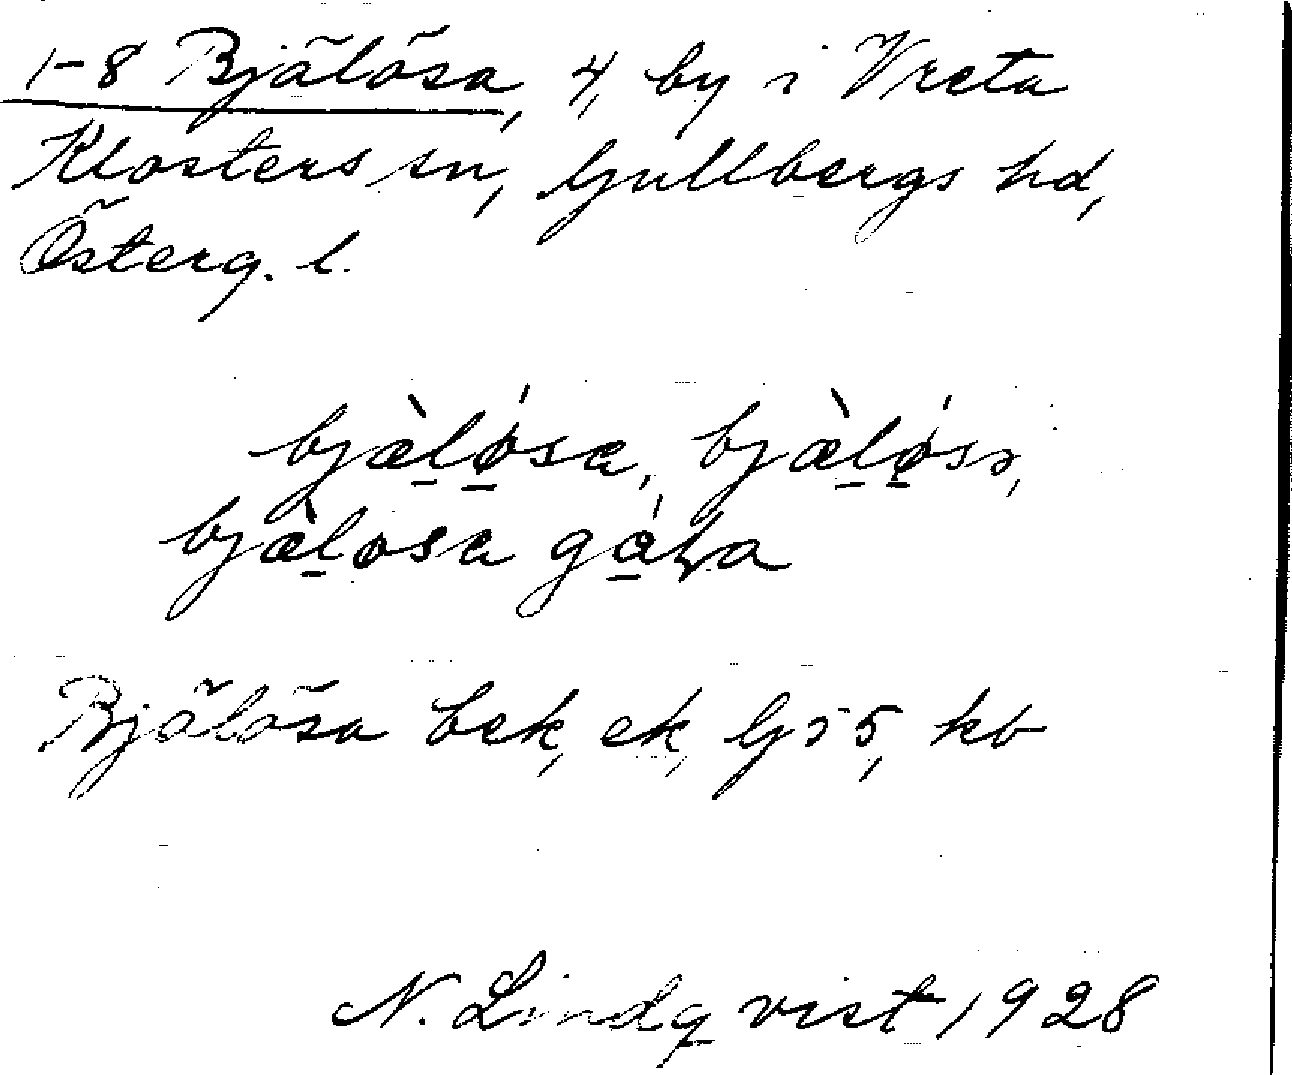 1-8 Bjälösa, 4, by i Vreta
Klosters sn, Gullbergs hd,
Österg. l.
bjæ̀ḷǿsa, bjæ̀ḷǿsə,
bjæ̀ḷøsa
Bjälösa bek, ek, kb
N. Lindqvist 1928